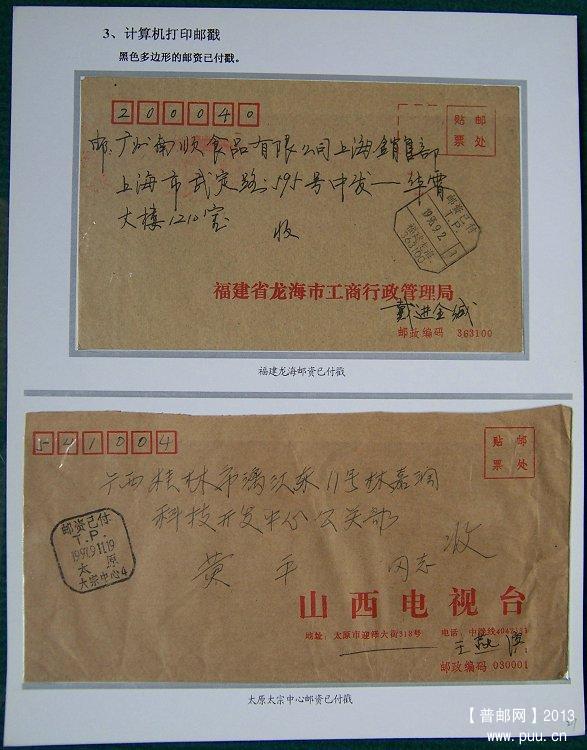 3、计算机打印邮戳
黑色多边形的邮资已付戳。
200040
贴 邮
票 处
邮: 广州南顺食品有限公司上海销售部
上海市武定路595号中发一华霄
大楼1210室
收
邮资已付
T.P.
福建龙海
363100
福建省龙海市工商行政管理局
戴进金缄
邮政编码 363100
福建龙海邮资已付戳
541004
贴 邮
票 处
广西桂林市漓江东11号林嘉润
科技开发中心公关部
黄平 同志 收
邮资已付
T.P.
1997.9.11.19
太原
大宗中心4
山西电视台
地址：太原市迎泽大街318号 电话：中继线
邮政编码 030001
太原太宗中心邮资已付戳
【普邮网】2013
www.puu.cn